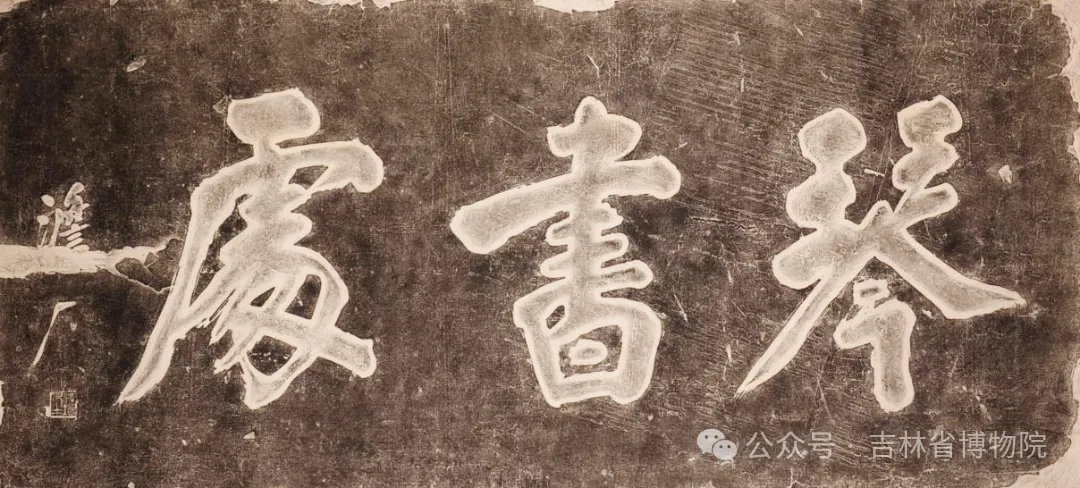 琴書處
澹厂
公众号 · 吉林省博物院